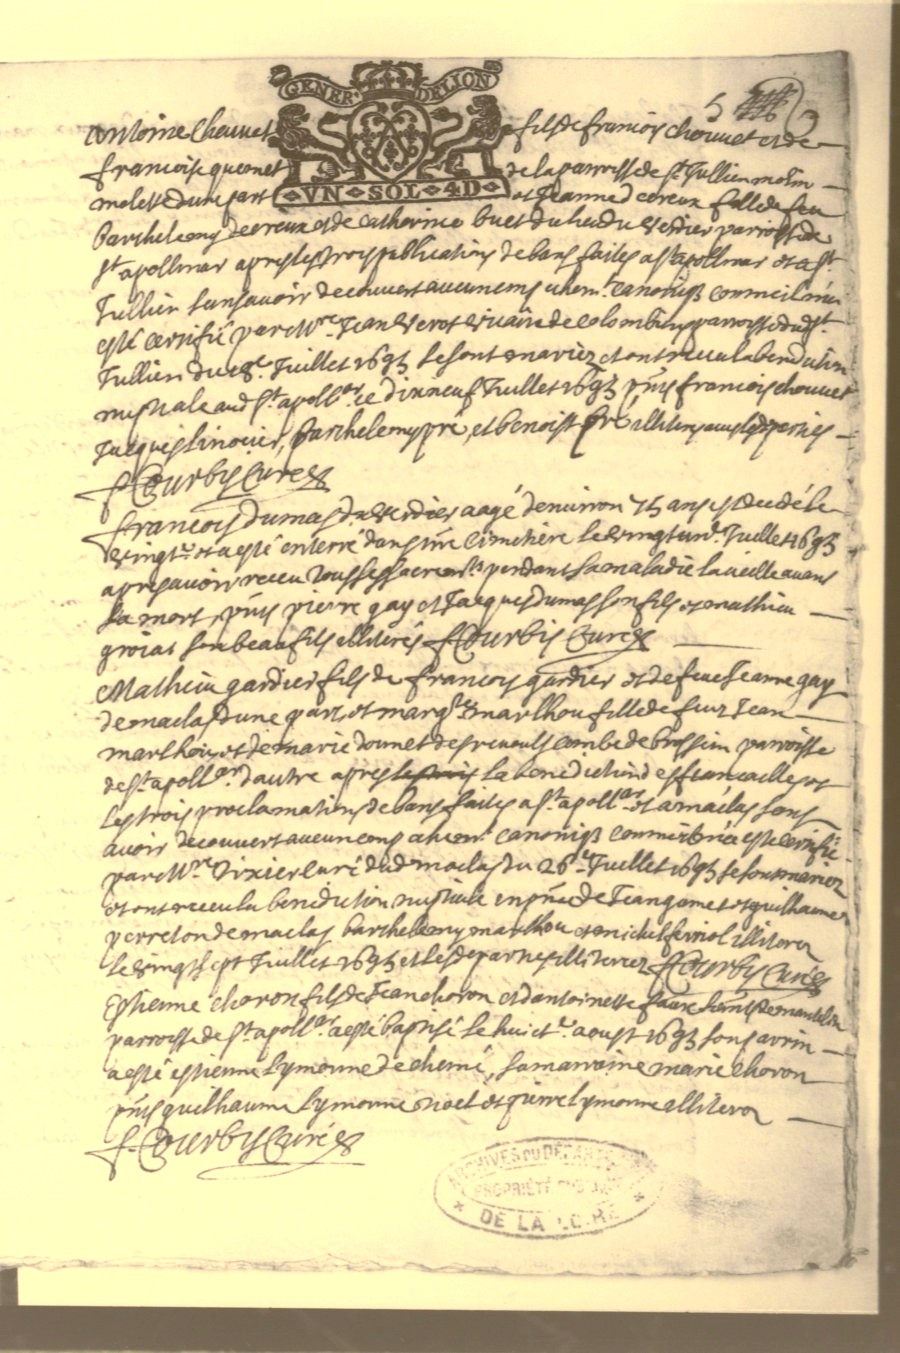 GENER. DE LION
VN SOL 4 D
5
antoine chouvet fils de francois chouvet et de
francoise quonet de la parroisse de st Jullien molin
molette dune part et Jeanne decreux fille de feu
Barthelemy decreux et de catherine buet du lieu du verdier parroisse de
st apollinar apres les trois publications de bans faites a st apollinar et a st
Jullien sans avoir decouvert aucun empechem.t canoniq comme il m'a
esté certifié par M.re Jean verot vicaire de colombier parroisse dud st
Jullien du 18e Juillet 1693 se sont mariez et ont receu la benediction
nuptiale aud st apoll.ar ce dix neuf Juillet 1693 pnts francois chouvet
Jacques linossier, Barthelemy pré, et benoist pré illiterez avec les parties
F Courbis Curé
francois dumas du verdier aagé denviron 75 ans est decedé le
vingt.e et a esté enterré dans n.re cimetiere le vingt un.e Juillet 1693
apres avoir receu tous ses sacrem.ts pendant sa maladie la veille avant
sa mort, pnts pierre gay et Jacques dumas son fils et mathieu
groiat son beau fils illiterés F Courbis Curé
Mathieu gardier fils de francois gardier et de feue Jeanne gay
de maclas dune part, et marg.te marlhou fille de feu Jean
marlhou, et de marie donnet des combe de brossin parroisse
de st apoll.ar dautre apres les trois la benediction des fiancailles et
les trois proclamations de bans faites a st apoll.ar et a maclas sans
avoir decouvert aucun empechem.t canoniq comme il m'a esté certifié
par M.re Tixier curé dud maclas du 26e Juillet 1693 se sont mariez
et ont receu la benediction nuptiale en pnce de Jean gamet et guilhaume
perreton de maclas barthelemy marlhou et michel ferriol illiterez
le vingt sept Juillet 1693 et lesd parties illiterez F Courbis Curé
Estienne choron fils de Jean choron et dantoinette faure de mantelin
parroisse de st apoll.ar a esté baptisé le huict.e aoust 1693 son parrin
a esté estienne lymonne de chemé, sa marraine marie choron
pnts guilhaume lymonne noel et pierre lymonne illiterez
F Courbis Curé
ARCHIVES DU DÉPARTEMENT
PROPRIÉTÉ PUBLIQUE
* DE LA LOIRE *